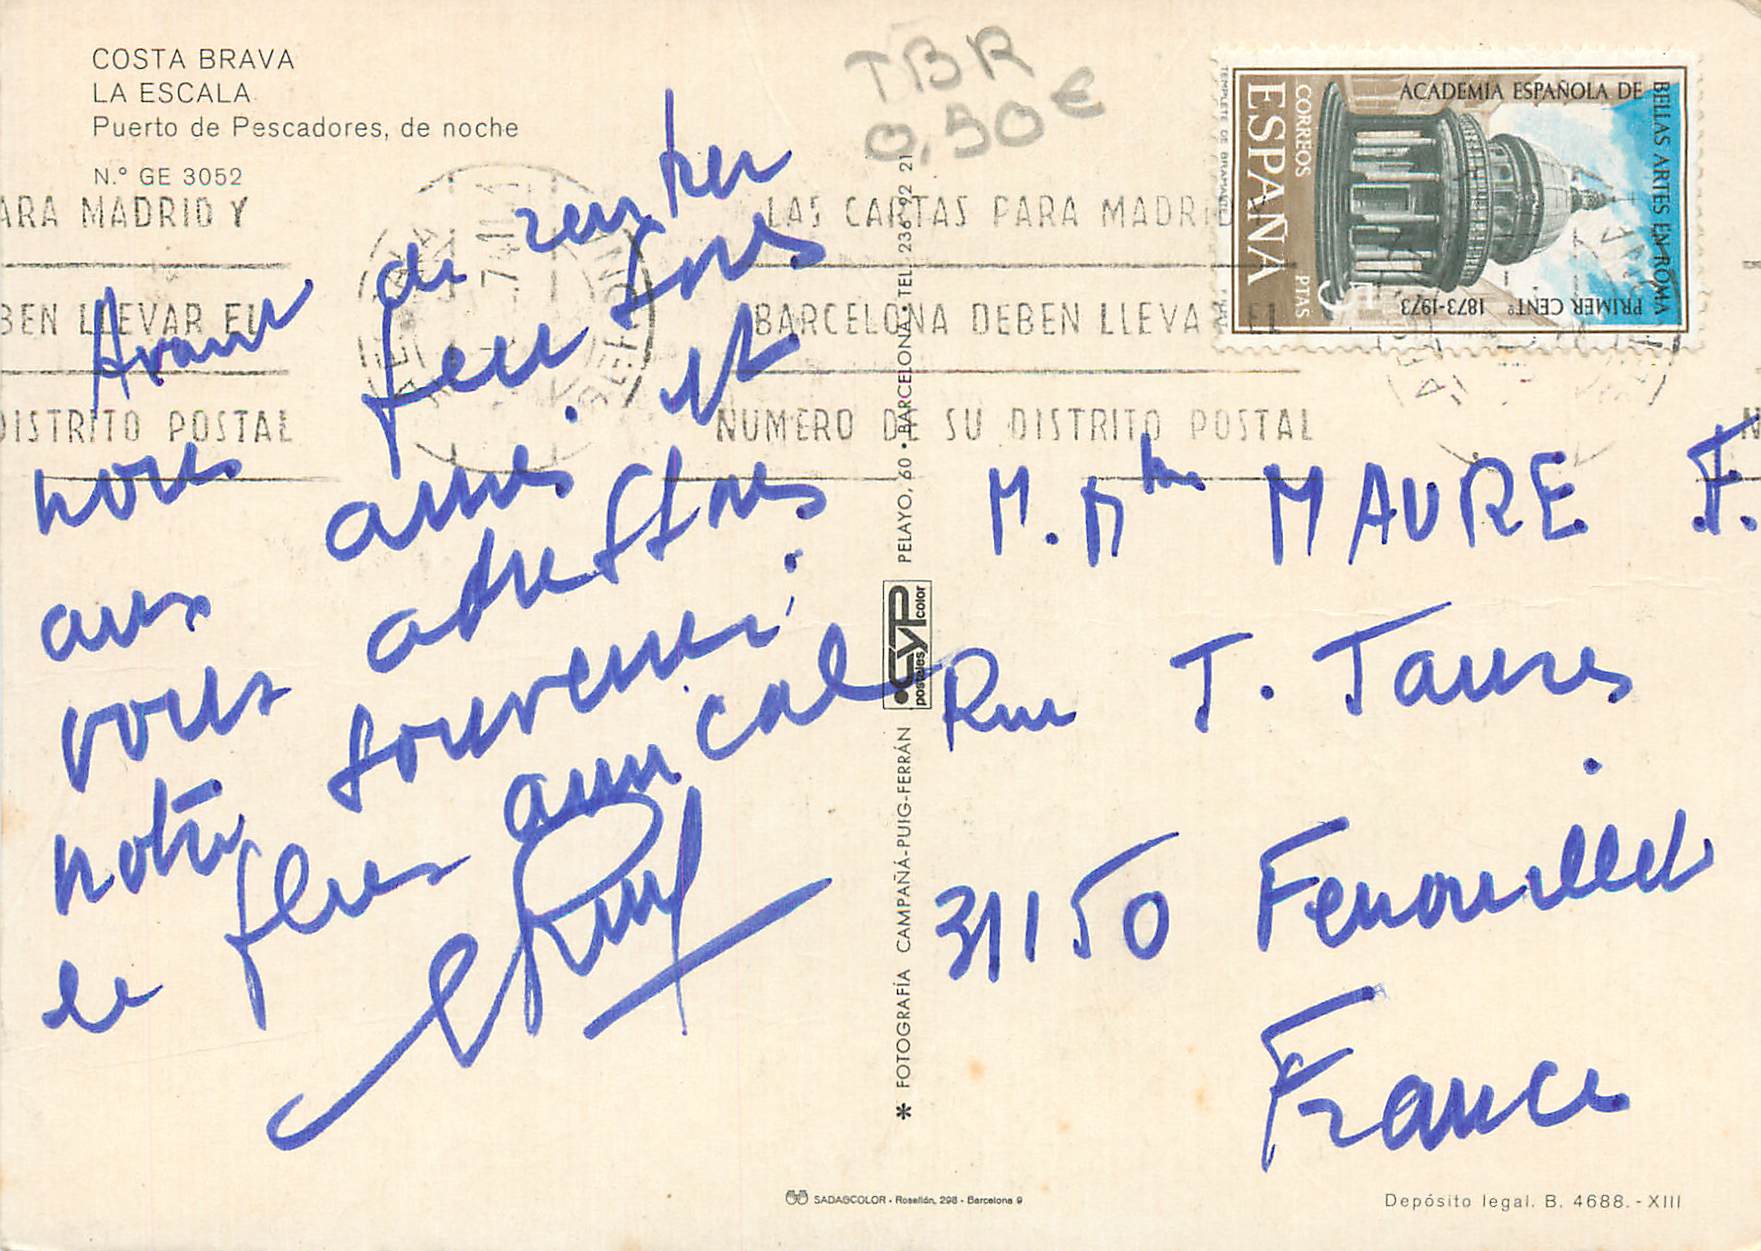 COSTA BRAVA
LA ESCALA
Puerto de Pescadores, de noche
N.º GE 3052
TBR
0,50€
ARA MADRID Y
BEN LLEVAR EL
DISTRITO POSTAL
LAS CARTAS PARA MADRI
BARCELONA DEBEN LLEVA EL
NUMERO DE SU DISTRITO POSTAL
ACADEMIA ESPAÑOLA DE
BELLAS ARTES EN ROMA
PRIMER CENTº 1873-1973
CORREOS
ESPAÑA
5 PTAS
TEMPLETE DE BRAMANTE
Avant de rentrer
nous
aux amis
vous adressons
notre souvenir
le plus amical
M. Mme MAURE F.
Rue J. Jaures
31150 Fenouillet
France
PELAYO, 60 • BARCELONA • TEL. 236 92 21
CYP
postales color
* FOTOGRAFÍA CAMPAÑÁ-PUIG-FERRÁN
SADAGCOLOR - Rosellón, 298 - Barcelona 9
Depósito legal. B. 4688.-XIII